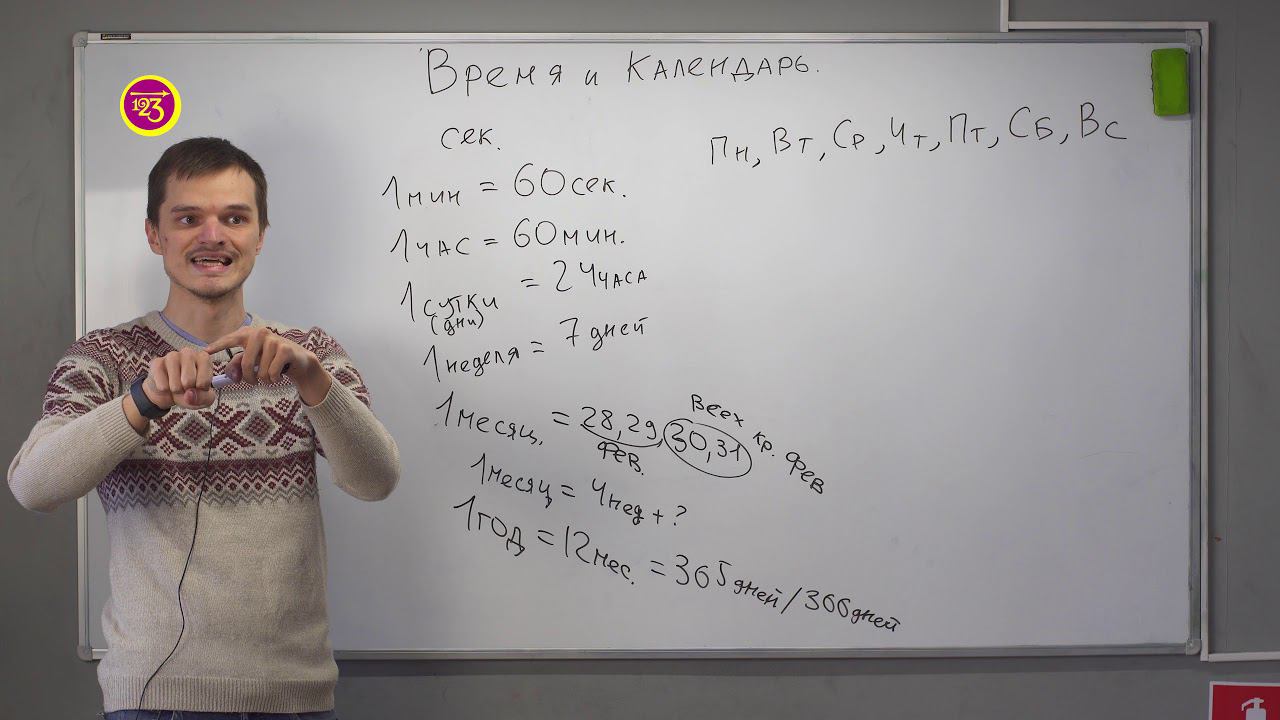 123
Время и календарь.
сек.
Пн, Вт, Ср, Чт, Пт, Сб, Вс
1 мин = 60 сек.
1 час = 60 мин.
1 сутки = 24 часа
(дни)
1 неделя = 7 дней
1 месяц. = 28, 29, 30, 31
фев.
всех кр. фев
1 месяц = 4 нед + ?
1 год = 12 мес. = 365 дней / 366 дней